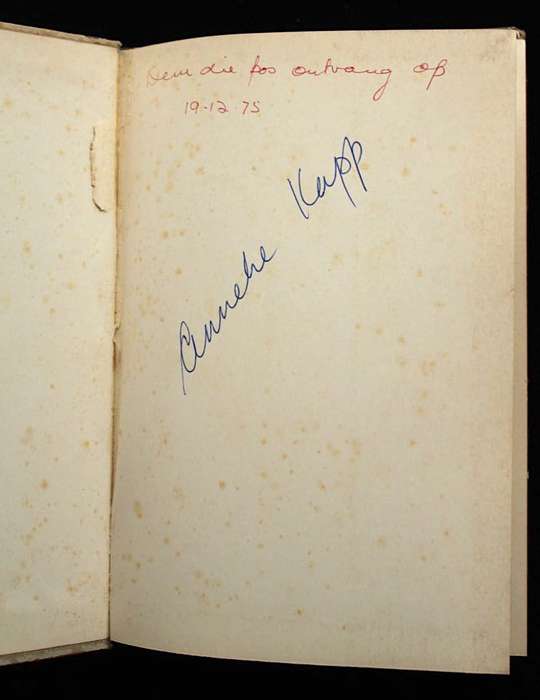 Deur die pos ontvang op
19-12-75
Anneke Kapp